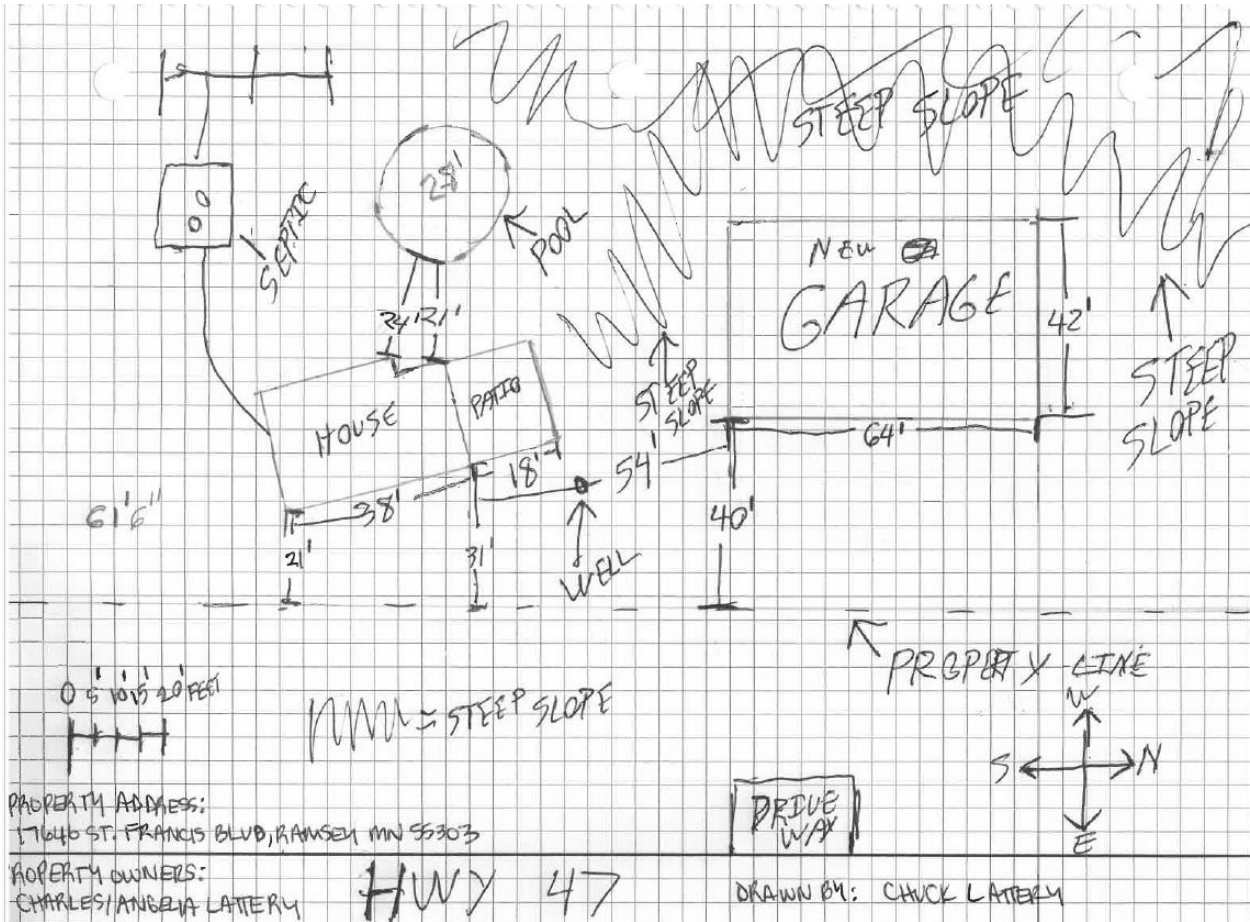 STEEP SLOPE
28'
SEPTIC
POOL
NEW
GARAGE
42'
24' 21'
STEEP
SLOPE
STEEP
SLOPE
HOUSE
PATIO
64'
18'
54'
38'
61'6"
40'
21'
31'
WELL
PROPERTY LINE
0 5' 10' 15' 20' FEET
= STEEP SLOPE
W
S
N
E
DRIVE
WAY
PROPERTY ADDRESS:
17646 ST. FRANCIS BLVD, RAMSEY MN 55303
ROPERTY OWNERS:
CHARLES/ANGELIA LATTERY
HWY 47
DRAWN BY: CHUCK LATTERY